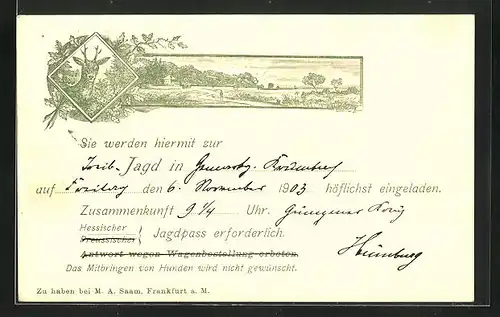 Sie werden hiermit zur
Treib-Jagd in
auf Freitag den 6. November 1903 höflichst eingeladen.
Zusammenkunft 9 1/4 Uhr.
Hessischer
Preussischer } Jagdpass erforderlich.
Antwort wegen Wagenbestellung erbeten.
Das Mitbringen von Hunden wird nicht gewünscht.
Zu haben bei M. A. Saam, Frankfurt a. M.